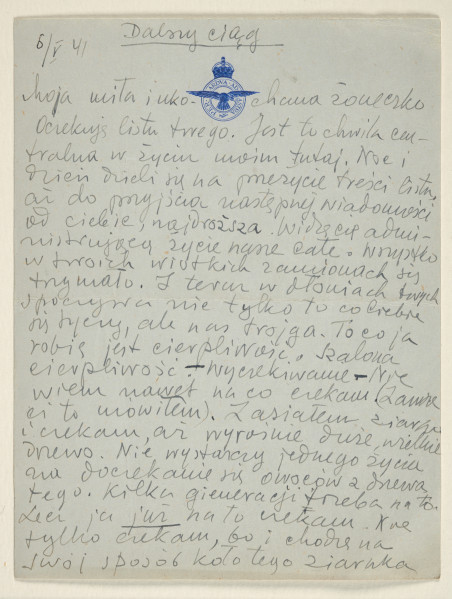 6/V 41 Dalszy ciąg
PER ARDUA AD ASTRA
Moja miła i uko- chana żoneczko
Oczekuję listu twego. Jest to chwila cen-
tralna w życiu moim tutaj. Noc i
dzień dzieli się na przeżycie treści listu,
aż do przyjścia następnej wiadomości
od ciebie, najdroższa. Widzę cię admi-
nistrującą życie nasze całe. Wszystko
w twoich wiotkich ramionach się
trzymało. I teraz w dłoniach twych
spoczywa nie tylko to co Ciebie
się tyczy, ale nas trojga. To co ja
robię jest cierpliwość. Szalona
cierpliwość – wyczekiwanie – Nie
wiem nawet na co czekam (zawsze
ci to mówiłem). Zasiałem ziarno
i czekam, aż wyrośnie duże, wielkie
drzewo. Nie wystarczy jednego życia
na doczekanie się owoców z drzewa
tego. Kilka gieneracji trzeba na to.
Lecz ja już na to czekam. Nie
tylko czekam, bo i chodzę na
swój sposób koło tego ziarnka